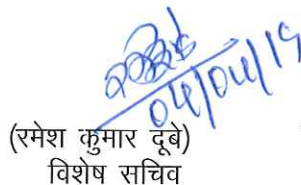 04/04/19
(रमेश कुमार दूबे)
विशेष सचिव